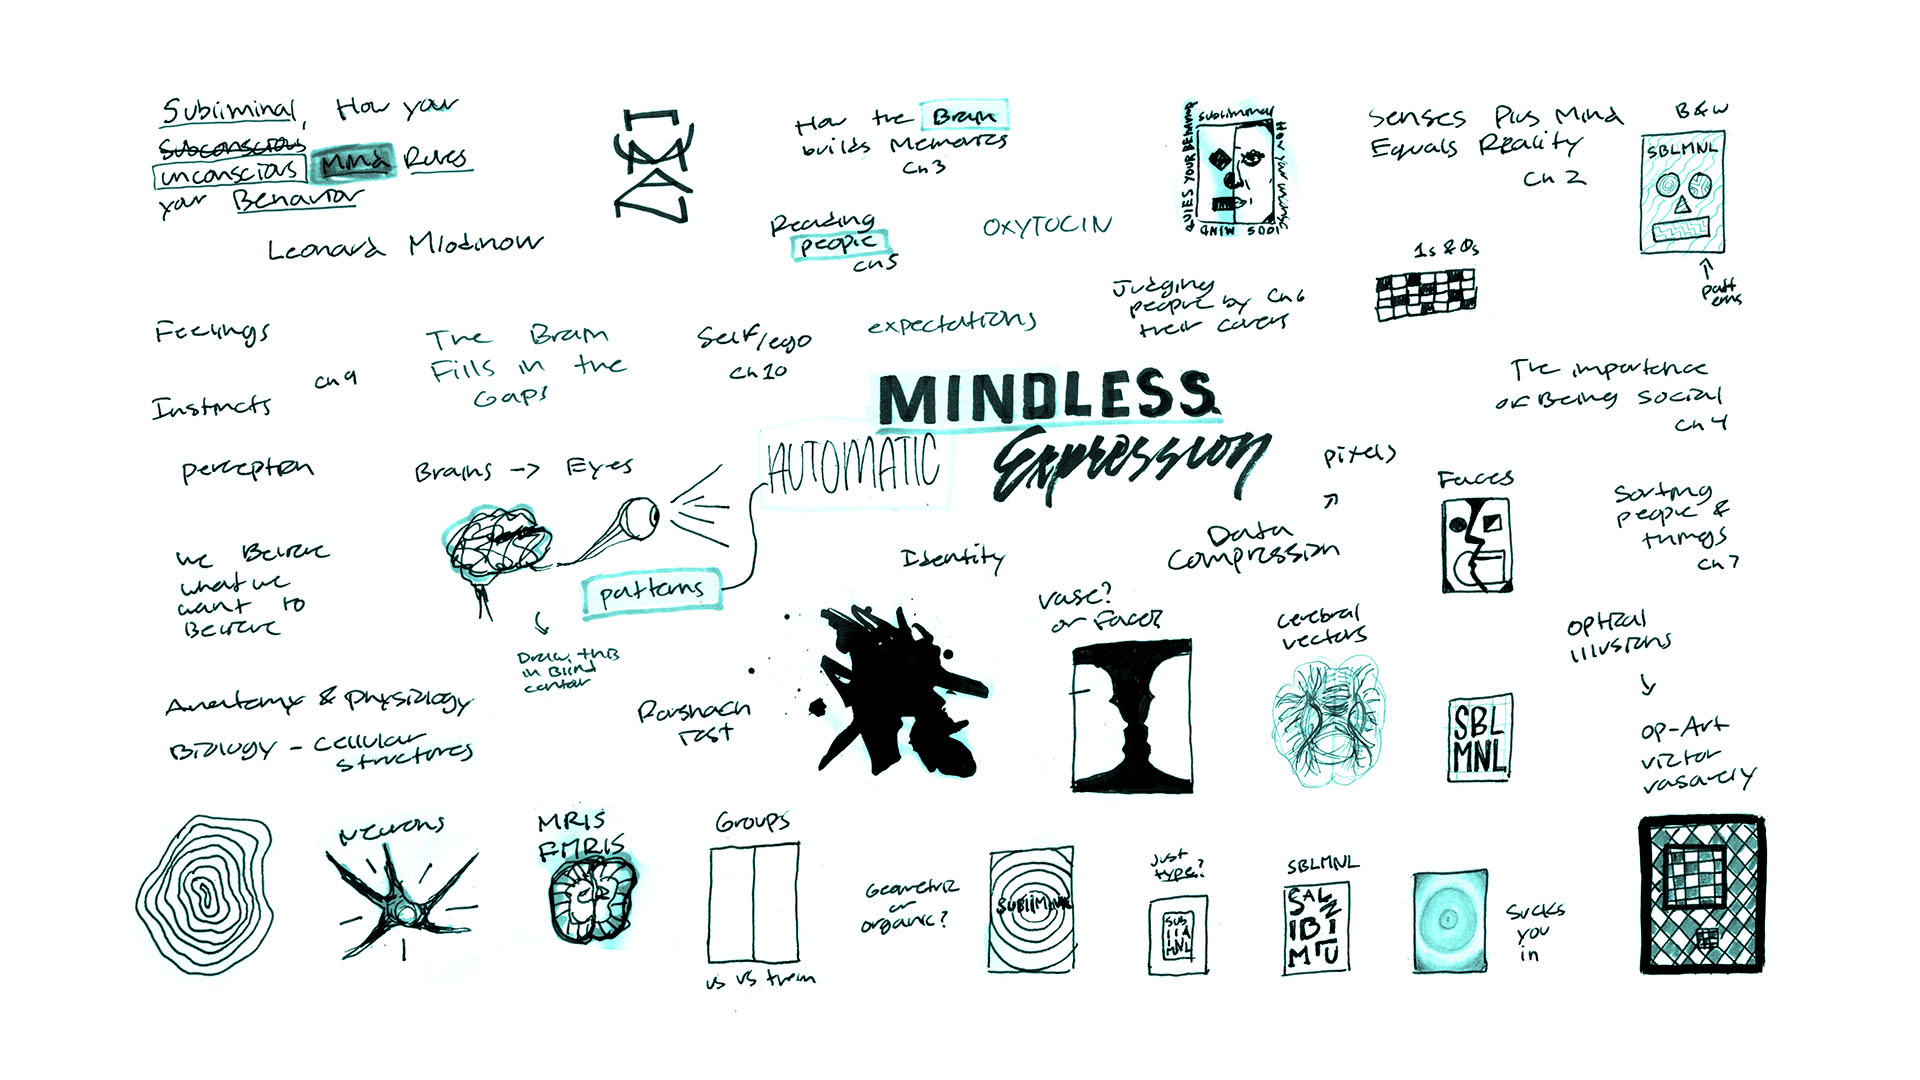 Subliminal, How your
subconscious
unconscious Mind Rules
your Behavior
Leonard Mlodinow
How the Brain
builds Memories
Ch 3
Reading
people
ch 5
OXYTOCIN
Subliminal
How your uncons
cious MIND
RULES YOUR BEHAVIOR
Senses Plus Mind
Equals Reality
Ch 2
B&W
SBLMNL
patt
erns
1s & 0s
Judging
people by Ch 6
their covers
Feelings
Instincts
ch 9
The Brain
Fills in the
Gaps
Self/ego
ch 10
expectations
MINDLESS
AUTOMATIC
Expression
The importance
of Being Social
ch 4
perception
Brains -> Eyes
patterns
Draw this
in Blind
contour
we Believe
what we
want to
Believe
Identity
pixels
Data
Compression
Faces
Sorting
people &
things
ch 7
Anatomy & physiology
Biology - cellular
structures
Rorshach
Test
vase?
or Faces
cerebral
vectors
SBL
MNL
optical
illusions
op-Art
victor
vasarely
Neurons
MRIS
FMRIS
Groups
us vs them
Geometric
or
organic?
SUBLIMINAL
Just
type?
SUB
LIA
MNL
SBLMNL
Sucks
you
in